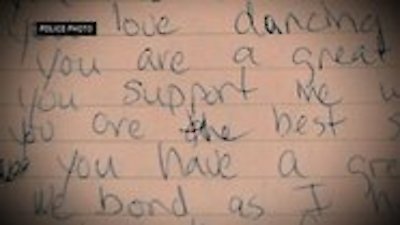 love dancing
POLICE PHOTO
you are a great
you support me
you are the best
you have a
we bond as I